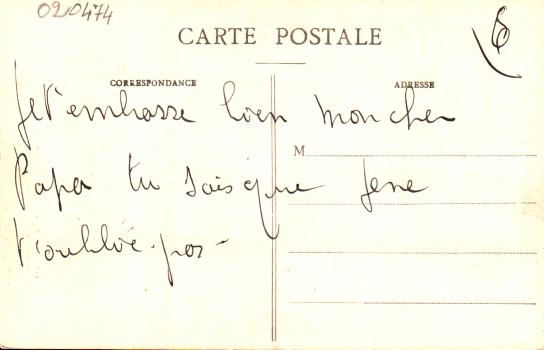 020474
CARTE POSTALE
CORRESPONDANCE
ADRESSE
Je t'embrasse bien mon cher
M
Papa tu sais que je ne
t'oublie pas -